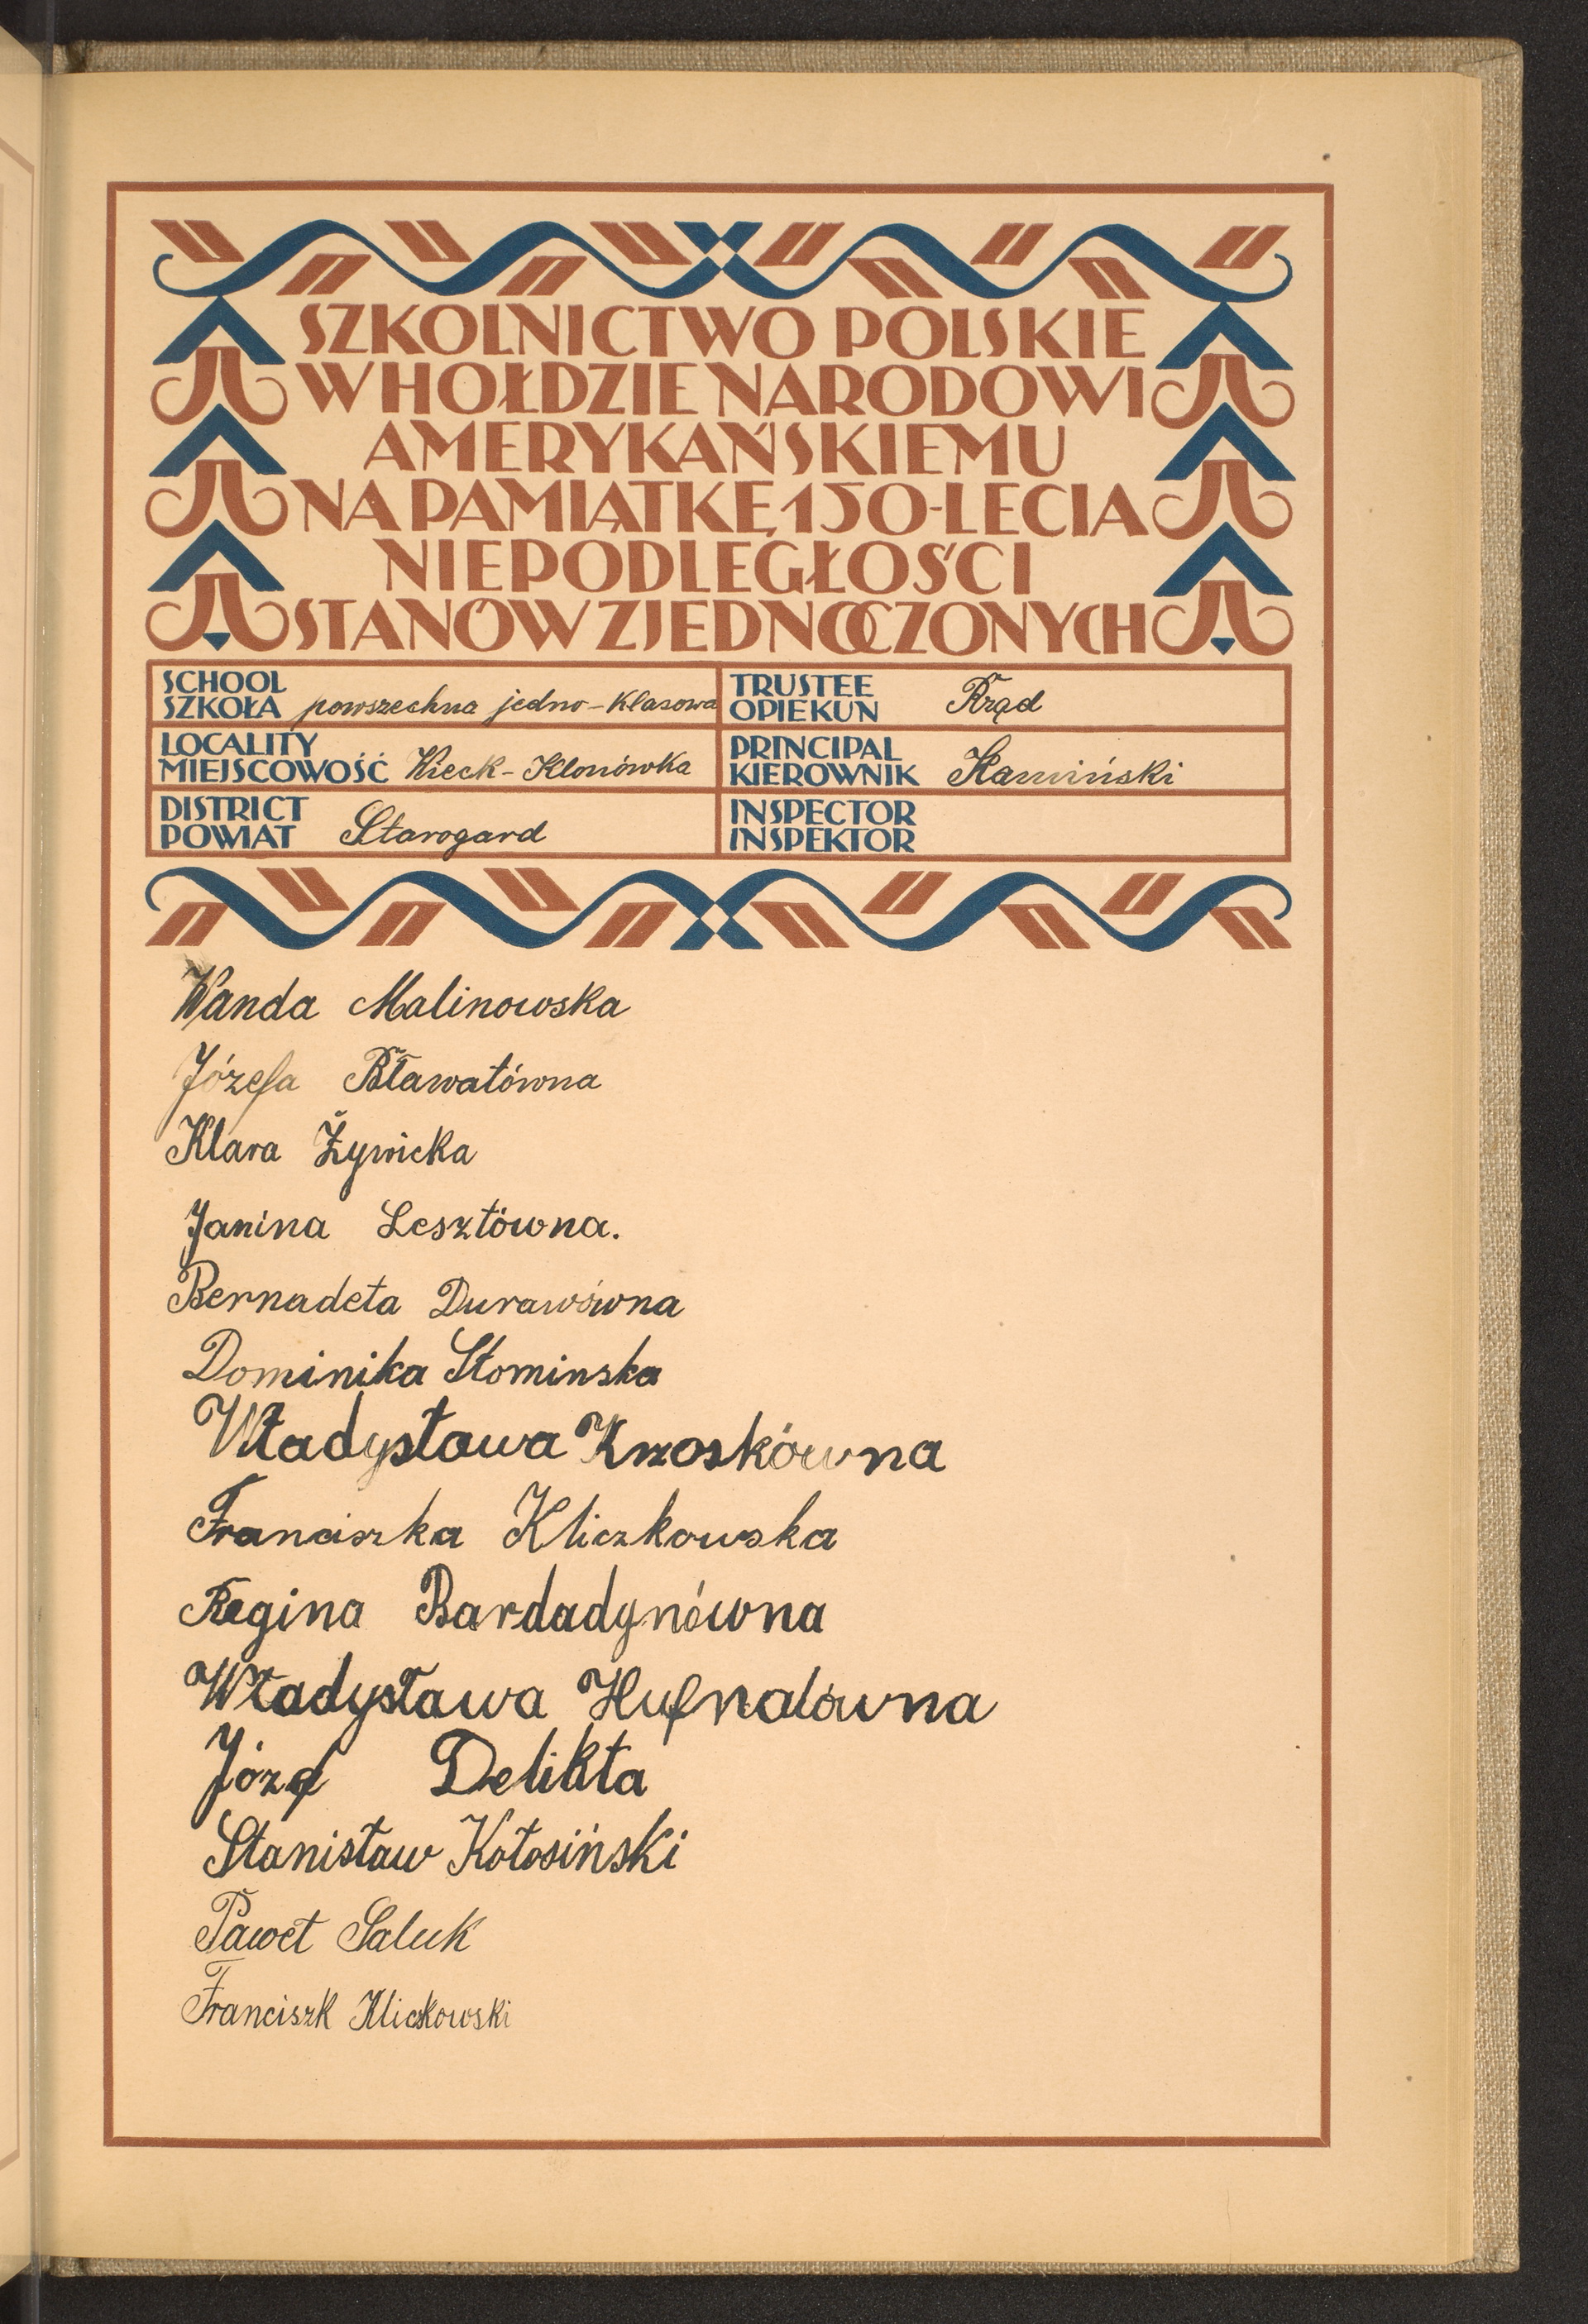 SZKOLNICTWO POLSKIE
W HOŁDZIE NARODOWI
AMERYKAŃSKIEMU
NA PAMIĄTKĘ 150-LECIA
NIEPODLEGŁOŚCI
STANÓW ZJEDNOCZONYCH
SCHOOL
SZKOŁA powszechna jedno-klasowa
TRUSTEE
OPIEKUN Rząd
LOCALITY
MIEJSCOWOŚĆ Wieck-Klonówka
PRINCIPAL
KIEROWNIK Kamiński
DISTRICT
POWIAT Starogard
INSPECTOR
INSPEKTOR
Wanda Malinowska
Józefa Bławatówna
Klara Żywicka
Janina Lesztówna.
Bernadeta Durawówna
Dominika Słominska
Władysława Krzoskówna
Franciszka Kliczkowska
Regina Bardadynówna
Władysława Hufnalówna
Józef Delikta
Stanisław Kołosiński
Paweł Saluk
Franciszk Klickowski